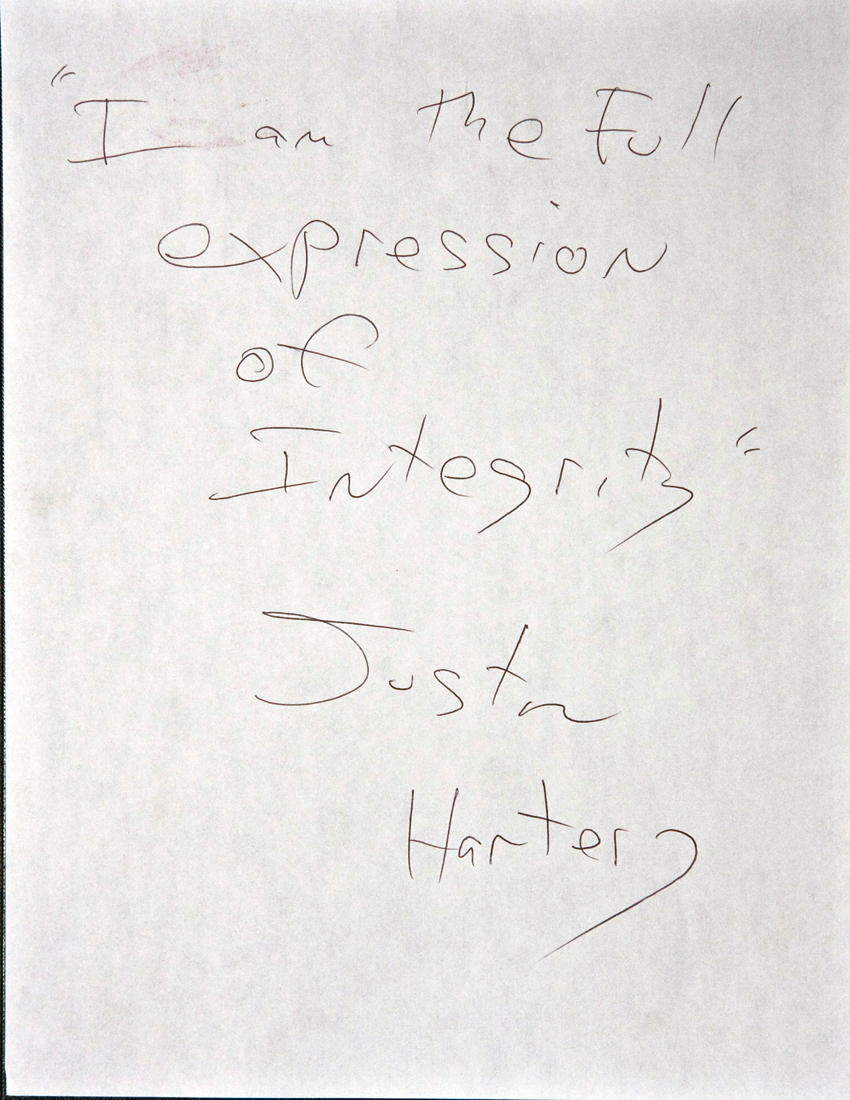 "I am the Full
expression
of
Integrity"
Justin
Harter